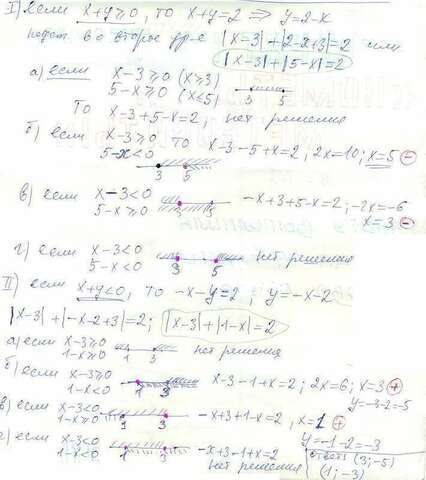 I) если x+y≥0, то x+y=2 ⇒ y=2-x
подст. во второе ур-е |x-3|+|2-x+3|=2 или
|x-3|+|5-x|=2
а) если x-3≥0 (x≥3)
5-x≥0 (x≤5) 3 5
То x-3+5-x=2, нет решения
б) если x-3≥0 то x-3-5+x=2, 2x=10; x=5 ⊖
5-x<0 3 5
в) если x-3<0 -x+3+5-x=2; -2x=-6
5-x≥0 x=3 ⊖
г) если x-3<0 нет решения
5-x<0 3 5
II) если x+y<0, то -x-y=2; y=-x-2
|x-3|+|-x-2+3|=2; |x-3|+|1-x|=2
а) если x-3≥0 нет решения
1-x≥0 1 3
б) если x-3≥0 x-3-1+x=2; 2x=6; x=3 ⊕
1-x<0 1 3 y=-3-2=-5
в) если x-3<0 -x+3+1-x=2, x=1 ⊕
1-x≥0 1 3 y=-1-2=-3
г) если x-3<0 -x+3-1+x=2
1-x<0 1 3 нет решения
Ответ: (3;-5)
(1;-3)